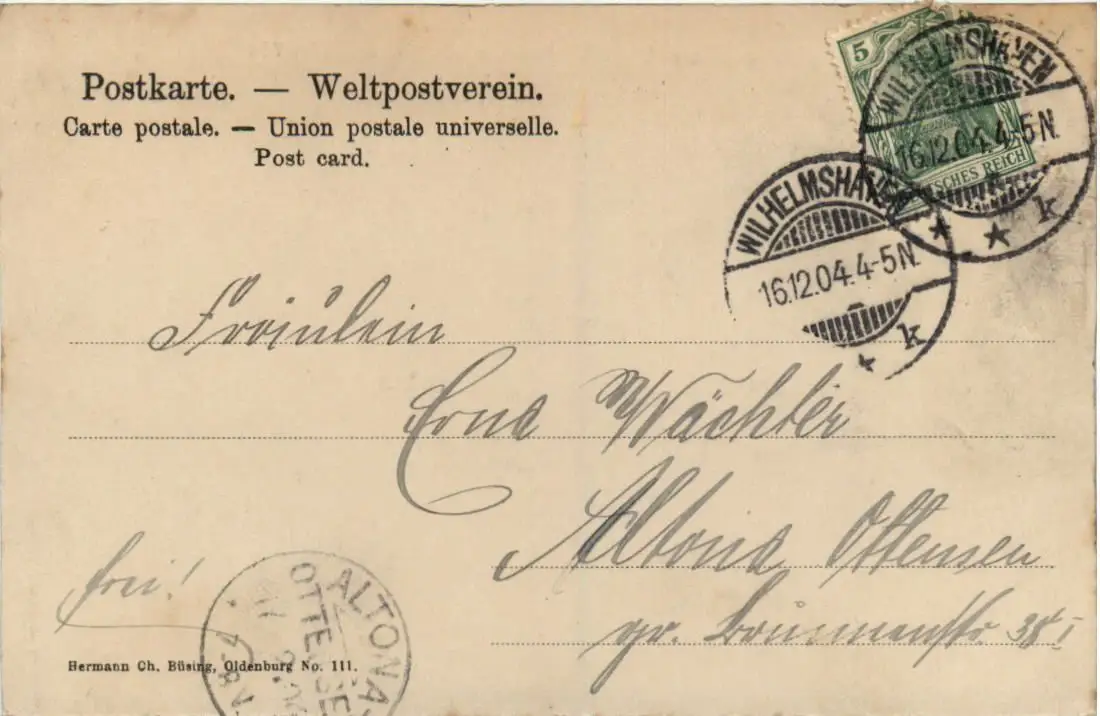 Postkarte. — Weltpostverein.
Carte postale. — Union postale universelle.
Post card.
5
SCHES REICH
WILHELMSHAVEN
16.12.04.4-5N.
* k
WILHELMSHAVEN
16.12.04.4-5N.
* k
Fräulein
Erna Wächter
Altona Ottensen
gr. Brunnenstr. 38 I
frei!
ALTONA
OTTENSE
Hermann Ch. Büsing, Oldenburg No. 111.